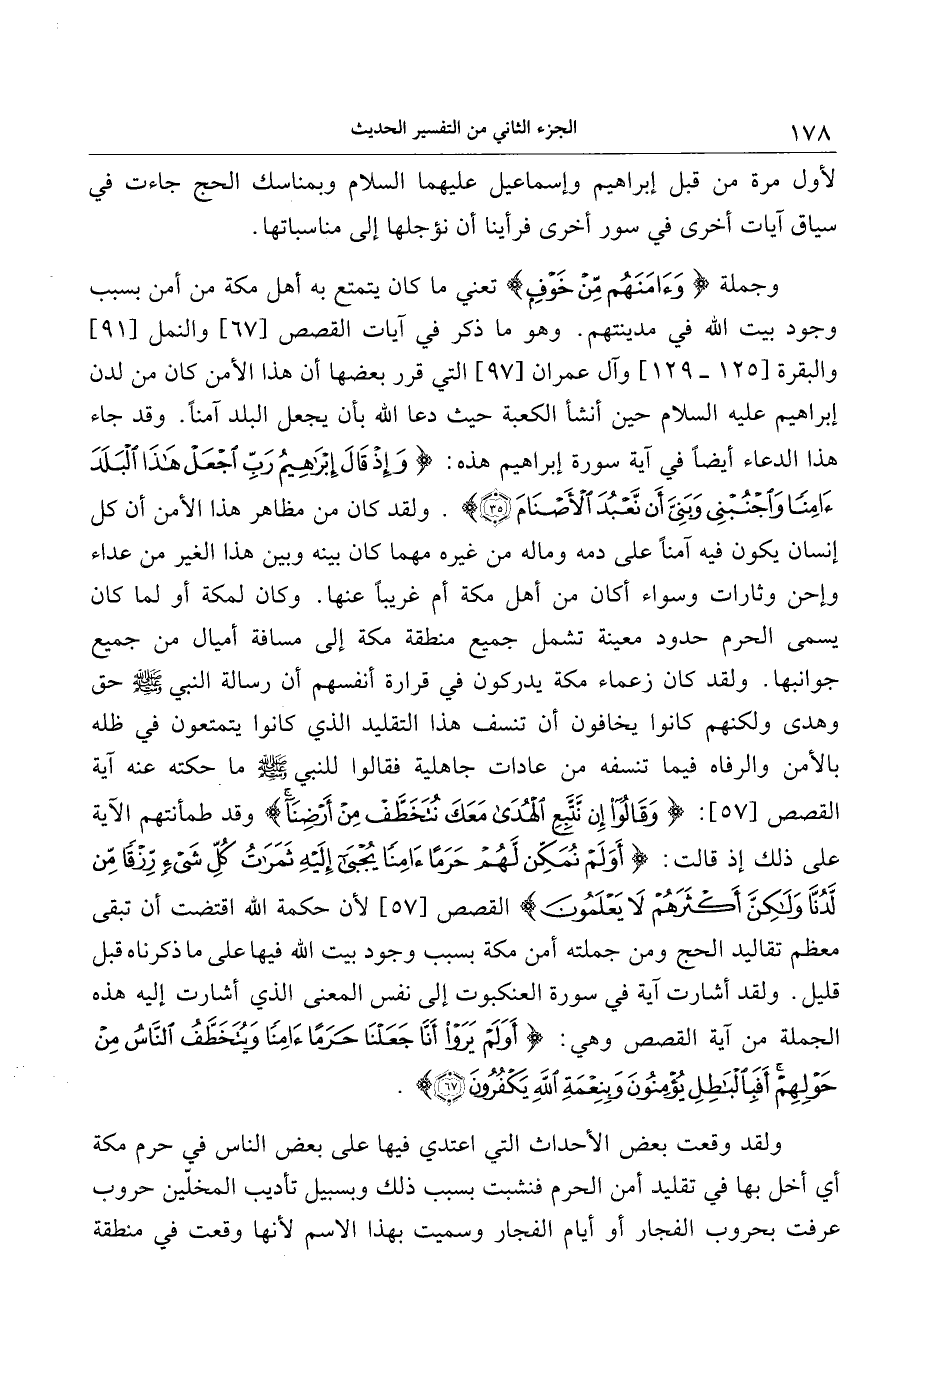 ١٧٨ الجزء الثاني من التفسير الحديث
لأول مرة من قبل إبراهيم وإسماعيل عليهما السلام وبمناسك الحج جاءت في
سياق آيات أخرى في سور أخرى فرأينا أن نؤجلها إلى مناسباتها.
وجملة ﴿ وَءَامَنَهُم مِّنْ خَوْفٍ﴾ تعني ما كان يتمتع به أهل مكة من أمن بسبب
وجود بيت الله في مدينتهم. وهو ما ذكر في آيات القصص [٦٧] والنمل [٩١]
والبقرة [١٢٥ ـ ١٢٩] وآل عمران [٩٧] التي قرر بعضها أن هذا الأمن كان من لدن
إبراهيم عليه السلام حين أنشأ الكعبة حيث دعا الله بأن يجعل البلد آمناً. وقد جاء
هذا الدعاء أيضاً في آية سورة إبراهيم هذه: ﴿ وَإِذْ قَالَ إِبْرَٰهِيمُ رَبِّ ٱجْعَلْ هَٰذَا ٱلْبَلَدَ
ءَامِنًا وَٱجْنُبْنِى وَبَنِىَّ أَن نَّعْبُدَ ٱلْأَصْنَامَ (٣٥)﴾ . ولقد كان من مظاهر هذا الأمن أن كل
إنسان يكون فيه آمناً على دمه وماله من غيره مهما كان بينه وبين هذا الغير من عداء
وإحن وثارات وسواء أكان من أهل مكة أم غريباً عنها. وكان لمكة أو لما كان
يسمى الحرم حدود معينة تشمل جميع منطقة مكة إلى مسافة أميال من جميع
جوانبها. ولقد كان زعماء مكة يدركون في قرارة أنفسهم أن رسالة النبي ﷺ حق
وهدى ولكنهم كانوا يخافون أن تنسف هذا التقليد الذي كانوا يتمتعون في ظله
بالأمن والرفاه فيما تنسفه من عادات جاهلية فقالوا للنبي ﷺ ما حكته عنه آية
القصص [٥٧]: ﴿ وَقَالُوٓا۟ إِن نَّتَّبِعِ ٱلْهُدَىٰ مَعَكَ نُتَخَطَّفْ مِنْ أَرْضِنَآ ۚ﴾ وقد طمأنتهم الآية
على ذلك إذ قالت: ﴿ أَوَلَمْ نُمَكِّن لَّهُمْ حَرَمًا ءَامِنًا يُجْبَىٰٓ إِلَيْهِ ثَمَرَٰتُ كُلِّ شَىْءٍ رِّزْقًا مِّن
لَّدُنَّا وَلَٰكِنَّ أَكْثَرَهُمْ لَا يَعْلَمُونَ﴾ القصص [٥٧] لأن حكمة الله اقتضت أن تبقى
معظم تقاليد الحج ومن جملته أمن مكة بسبب وجود بيت الله فيها على ما ذكرناه قبل
قليل. ولقد أشارت آية في سورة العنكبوت إلى نفس المعنى الذي أشارت إليه هذه
الجملة من آية القصص وهي: ﴿ أَوَلَمْ يَرَوْا۟ أَنَّا جَعَلْنَا حَرَمًا ءَامِنًا وَيُتَخَطَّفُ ٱلنَّاسُ مِنْ
حَوْلِهِمْ ۚ أَفَبِٱلْبَٰطِلِ يُؤْمِنُونَ وَبِنِعْمَةِ ٱللَّهِ يَكْفُرُونَ (٦٧)﴾ .
ولقد وقعت بعض الأحداث التي اعتدي فيها على بعض الناس في حرم مكة
أي أخل بها في تقليد أمن الحرم فنشبت بسبب ذلك وبسبيل تأديب المخلّين حروب
عرفت بحروب الفجار أو أيام الفجار وسميت بهذا الاسم لأنها وقعت في منطقة